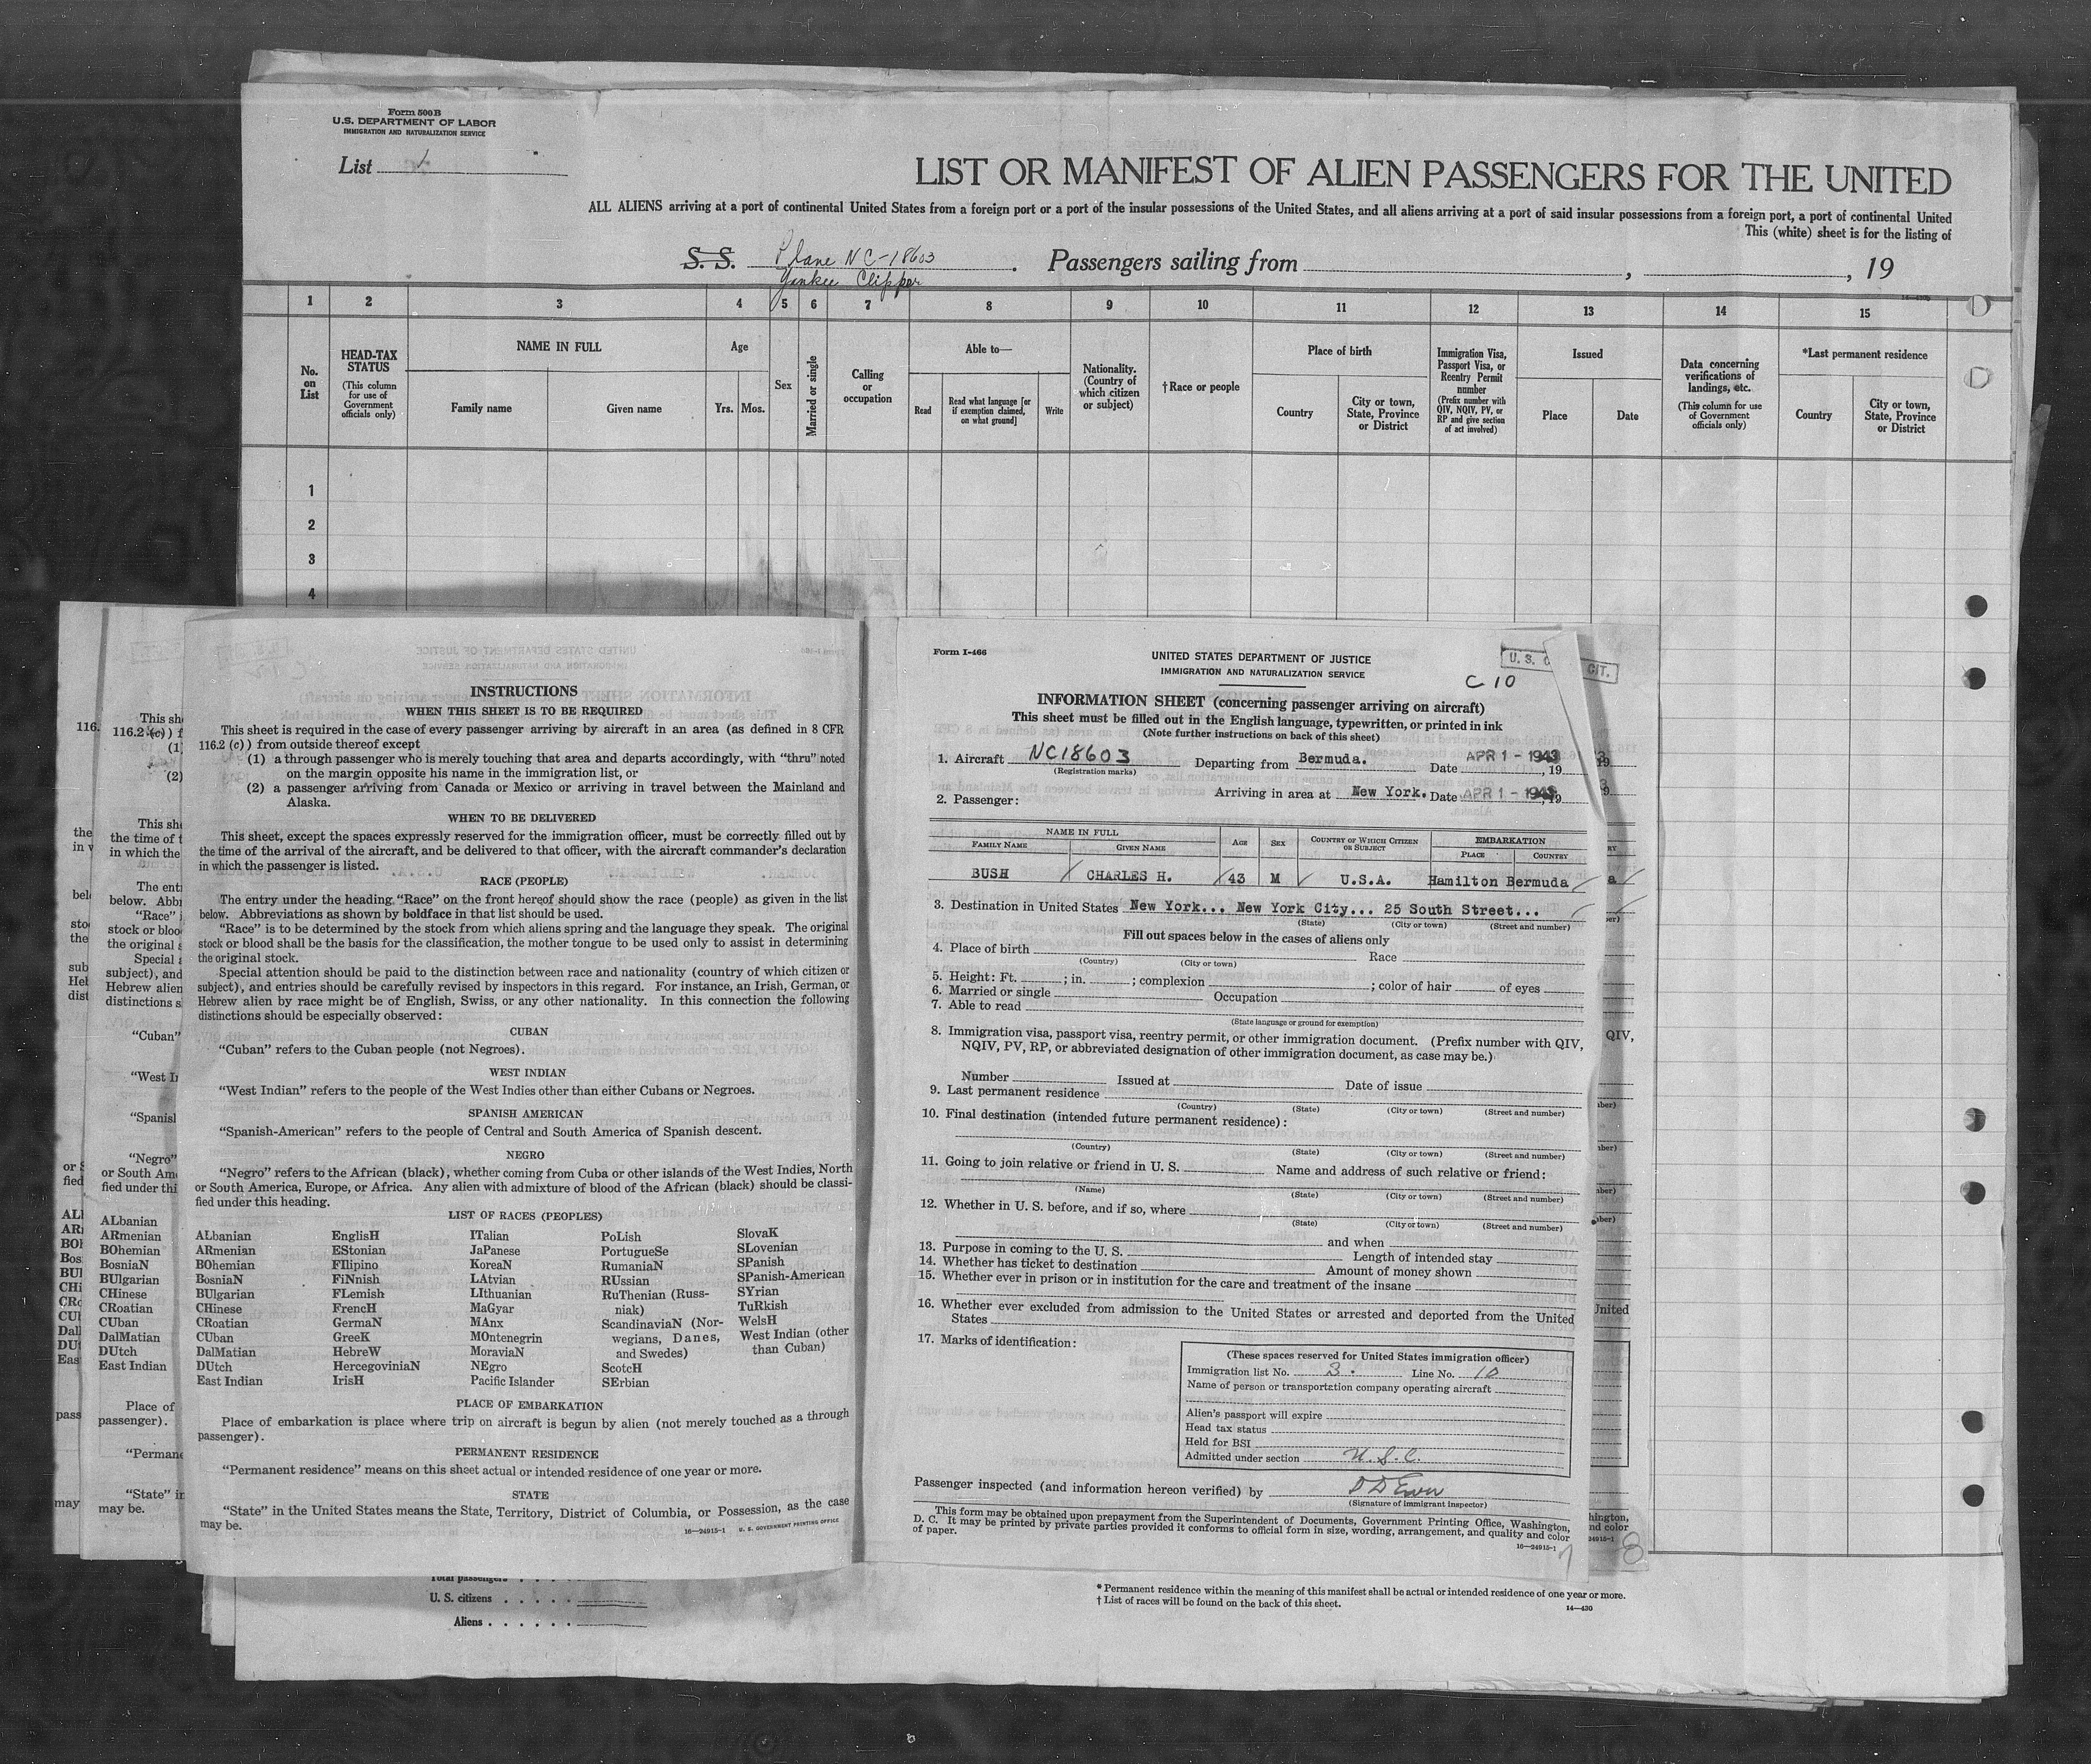 Form 500B
U.S. DEPARTMENT OF LABOR
IMMIGRATION AND NATURALIZATION SERVICE
List 1
LIST OR MANIFEST OF ALIEN PASSENGERS FOR THE UNITED
ALL ALIENS arriving at a port of continental United States from a foreign port or a port of the insular possessions of the United States, and all aliens arriving at a port of said insular possessions from a foreign port, a port of continental United
This (white) sheet is for the listing of
S. S. Plane NC-18603
Yankee Clipper
Passengers sailing from , , 19
1 2 3 4 5 6 7 8 9 10 11 12 13 14 15
No. on List
HEAD-TAX STATUS
(This column for use of Government officials only)
NAME IN FULL
Family name
Given name
Age
Yrs. Mos.
Sex
Married or single
Calling or occupation
Able to—
Read
Read what language [or if exemption claimed, on what ground]
Write
Nationality. (Country of which citizen or subject)
†Race or people
Place of birth
Country
City or town, State, Province or District
Immigration Visa, Passport Visa, or Reentry Permit number
(Prefix number with QIV, NQIV, PV, or RP and give section of act involved)
Issued
Place
Date
Data concerning verifications of landings, etc.
(This column for use of Government officials only)
*Last permanent residence
Country
City or town, State, Province or District
1
2
3
4
INSTRUCTIONS
WHEN THIS SHEET IS TO BE REQUIRED
This sheet is required in the case of every passenger arriving by aircraft in an area (as defined in 8 CFR
116.2 (c)) from outside thereof except
(1) a through passenger who is merely touching that area and departs accordingly, with "thru" noted
on the margin opposite his name in the immigration list, or
(2) a passenger arriving from Canada or Mexico or arriving in travel between the Mainland and
Alaska.
WHEN TO BE DELIVERED
This sheet, except the spaces expressly reserved for the immigration officer, must be correctly filled out by
the time of the arrival of the aircraft, and be delivered to that officer, with the aircraft commander's declaration
in which the passenger is listed.
RACE (PEOPLE)
The entry under the heading "Race" on the front hereof should show the race (people) as given in the list
below. Abbreviations as shown by boldface in that list should be used.
"Race" is to be determined by the stock from which aliens spring and the language they speak. The original
stock or blood shall be the basis for the classification, the mother tongue to be used only to assist in determining
the original stock.
Special attention should be paid to the distinction between race and nationality (country of which citizen or
subject), and entries should be carefully revised by inspectors in this regard. For instance, an Irish, German, or
Hebrew alien by race might be of English, Swiss, or any other nationality. In this connection the following
distinctions should be especially observed:
CUBAN
"Cuban" refers to the Cuban people (not Negroes).
WEST INDIAN
"West Indian" refers to the people of the West Indies other than either Cubans or Negroes.
SPANISH AMERICAN
"Spanish-American" refers to the people of Central and South America of Spanish descent.
NEGRO
"Negro" refers to the African (black), whether coming from Cuba or other islands of the West Indies, North
or South America, Europe, or Africa. Any alien with admixture of blood of the African (black) should be classi-
fied under this heading.
LIST OF RACES (PEOPLES)
ALbanian
ARmenian
BOhemian
BosniaN
BUlgarian
CHinese
CRoatian
CUban
DalMatian
DUtch
East Indian
EnglisH
EStonian
FIlipino
FiNnish
FLemish
FrencH
GermaN
GreeK
HebreW
HercegoviniaN
IrisH
ITalian
JaPanese
KoreaN
LAtvian
LIthuanian
MaGyar
MAnx
MOntenegrin
MoraviaN
NEgro
Pacific Islander
PoLish
PortugueSe
RumaniaN
RUssian
RuThenian (Russ-
niak)
ScandinaviaN (Nor-
wegians, Danes,
and Swedes)
ScotcH
SErbian
SlovaK
SLovenian
SPanish
SPanish-American
SYrian
TuRkish
WelsH
West Indian (other
than Cuban)
PLACE OF EMBARKATION
Place of embarkation is place where trip on aircraft is begun by alien (not merely touched as a through
passenger).
PERMANENT RESIDENCE
"Permanent residence" means on this sheet actual or intended residence of one year or more.
STATE
"State" in the United States means the State, Territory, District of Columbia, or Possession, as the case
may be.
16—24915-1 U. S. GOVERNMENT PRINTING OFFICE
Form I-466
UNITED STATES DEPARTMENT OF JUSTICE
IMMIGRATION AND NATURALIZATION SERVICE
U. S. C
CIT.
C 10
INFORMATION SHEET (concerning passenger arriving on aircraft)
This sheet must be filled out in the English language, typewritten, or printed in ink
(Note further instructions on back of this sheet)
1. Aircraft NC18603 Departing from Bermuda. Date APR 1 - 1943, 19
(Registration marks)
Arriving in area at New York. Date APR 1 - 1943, 19
2. Passenger:
NAME IN FULL
FAMILY NAME GIVEN NAME AGE SEX COUNTRY OF WHICH CITIZEN OR SUBJECT EMBARKATION PLACE COUNTRY
BUSH CHARLES H. 43 M U.S.A. Hamilton Bermuda
3. Destination in United States New York... New York City... 25 South Street...
(State) (City or town) (Street and number)
Fill out spaces below in the cases of aliens only
4. Place of birth Race
(Country) (City or town)
5. Height: Ft. ; in. ; complexion ; color of hair of eyes
6. Married or single Occupation
7. Able to read
(State language or ground for exemption)
8. Immigration visa, passport visa, reentry permit, or other immigration document. (Prefix number with QIV,
NQIV, PV, RP, or abbreviated designation of other immigration document, as case may be.)
Number Issued at Date of issue
9. Last permanent residence
(Country) (State) (City or town) (Street and number)
10. Final destination (intended future permanent residence):
(Country) (State) (City or town) (Street and number)
11. Going to join relative or friend in U. S. Name and address of such relative or friend:
(Name) (State) (City or town) (Street and number)
12. Whether in U. S. before, and if so, where
(State) (City or town) (Street and number)
and when
13. Purpose in coming to the U. S. Length of intended stay
14. Whether has ticket to destination Amount of money shown
15. Whether ever in prison or in institution for the care and treatment of the insane
16. Whether ever excluded from admission to the United States or arrested and deported from the United
States
17. Marks of identification:
(These spaces reserved for United States immigration officer)
Immigration list No. 3. Line No. 10
Name of person or transportation company operating aircraft
Alien's passport will expire
Head tax status
Held for BSI
Admitted under section U. S. C.
Passenger inspected (and information hereon verified) by
(Signature of immigrant inspector)
This form may be obtained upon prepayment from the Superintendent of Documents, Government Printing Office, Washington,
D. C. It may be printed by private parties provided it conforms to official form in size, wording, arrangement, and quality and color
of paper.
16—24915-1
7
8
Total passengers
U. S. citizens
Aliens
* Permanent residence within the meaning of this manifest shall be actual or intended residence of one year or more.
† List of races will be found on the back of this sheet.
14—430